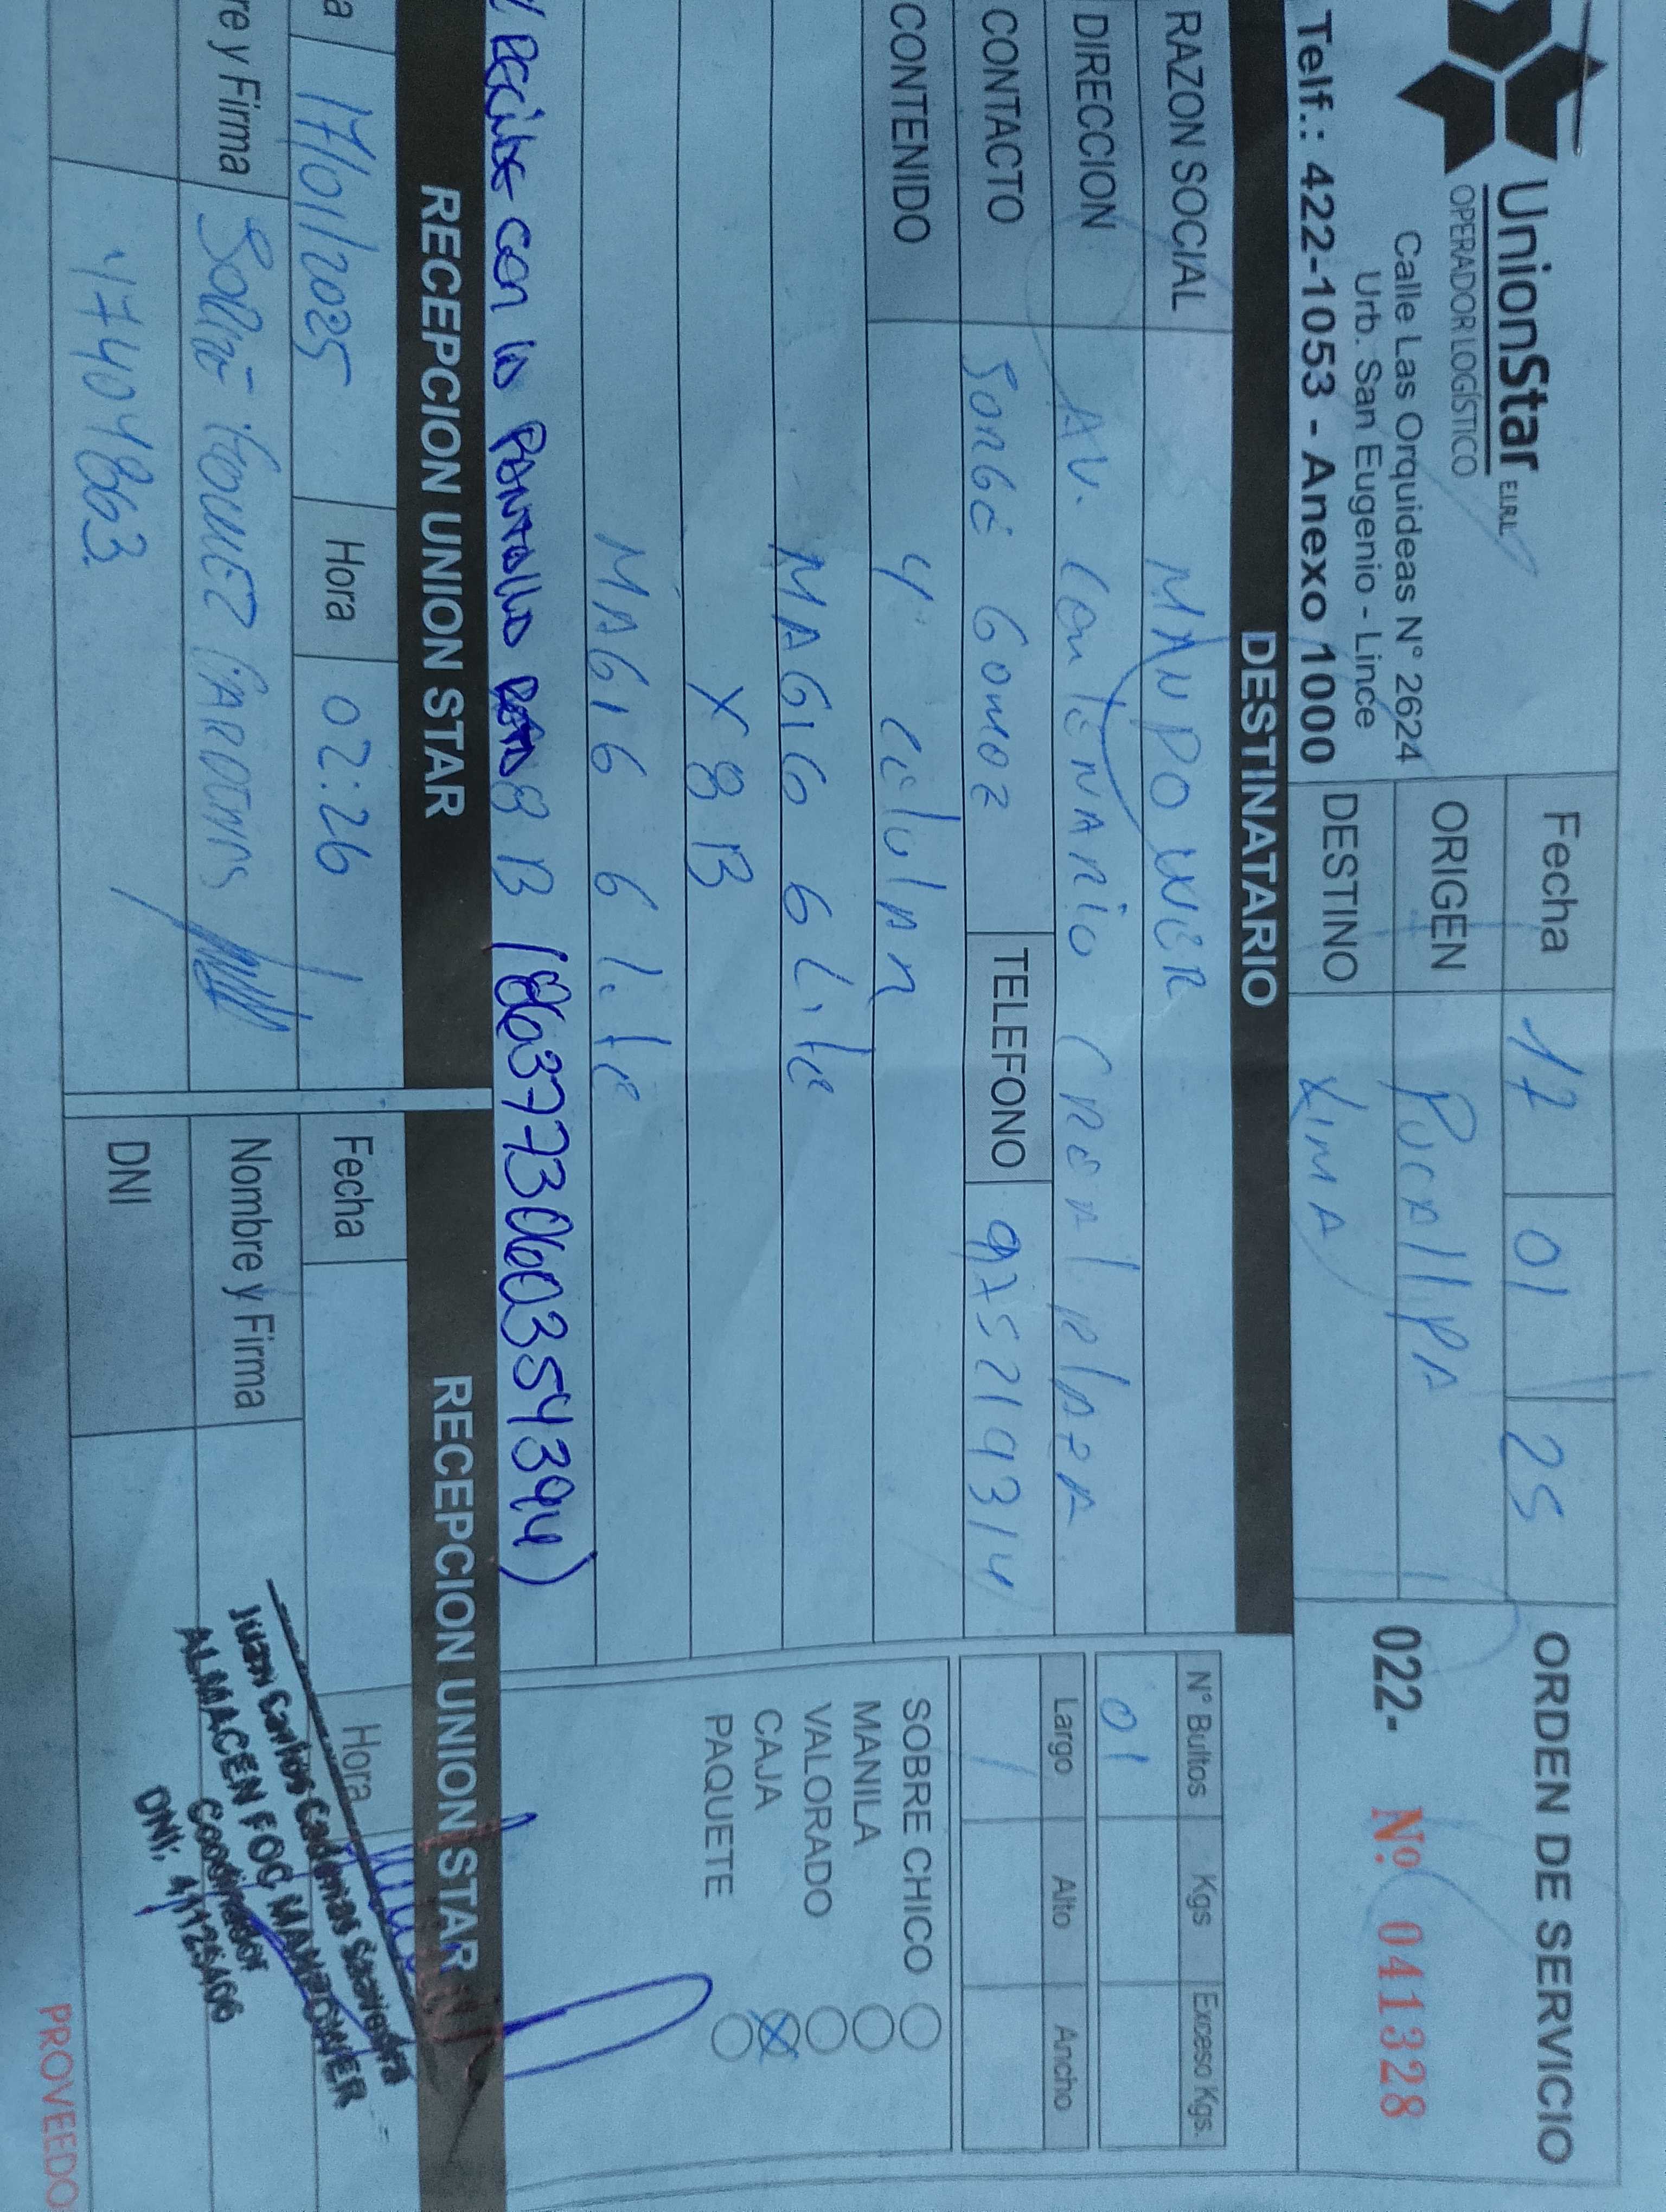 UnionStar E.I.R.L
OPERADOR LOGÍSTICO
Calle Las Orquideas N° 2624
Urb. San Eugenio - Lince
Telf.: 422-1053 - Anexo 1000
Fecha 17 01 25
ORIGEN PucallPA
DESTINO LimA
ORDEN DE SERVICIO
022- Nº 041328
DESTINATARIO
RAZON SOCIAL MANPOWER
DIRECCION AV. CenTENARIO CReAl PlAzA
CONTACTO Gomez TELEFONO 975219314
CONTENIDO 4 CelulAR
MAGIC 6 Lite
X8B
MAGIC 6 Lite
Recibe con la PANTALLA 8 B (863773060354394)
N° Bultos Kgs Exceso Kgs.
01
Largo Alto Ancho
SOBRE CHICO
MANILA
VALORADO
CAJA
PAQUETE
RECEPCION UNION STAR
a 17/01/2025 Hora 02:26
re y Firma
47404863
RECEPCION UNION STAR
Fecha Hora
Nombre y Firma
DNI
Juan Carlos Cardenas Saavedra
ALMACEN FOC MANPOWER
Coordinador
DNI: 41125406
PROVEEDO